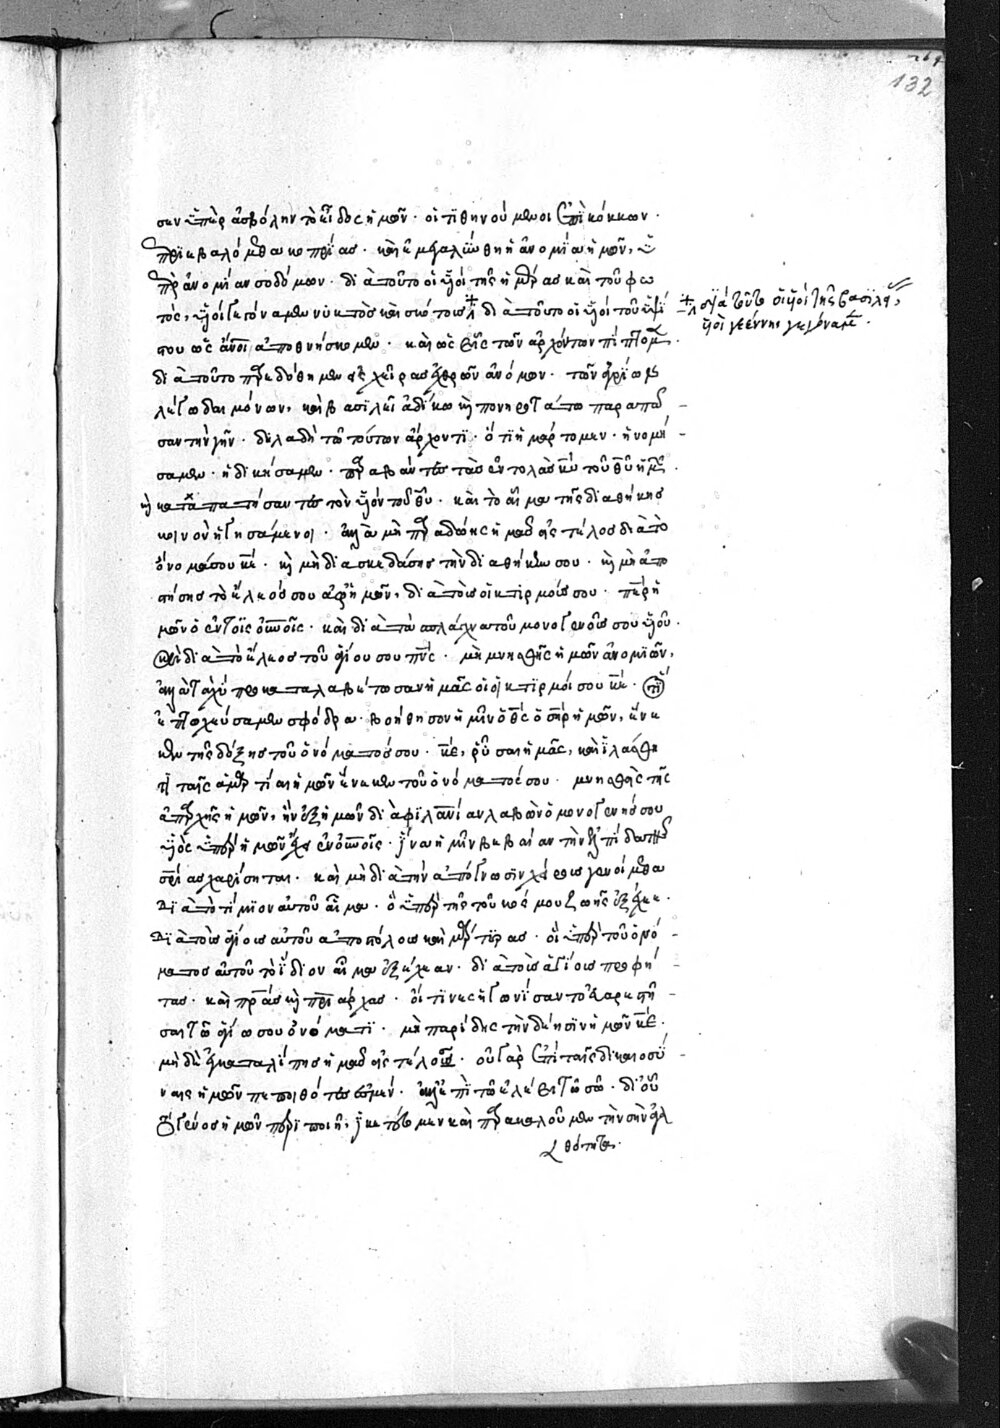 132
σεν ὑπὲρ ἀσβόλην τὸ εἶδος ἡμῶν · οἱ τιθηνούμενοι ἐπὶ κόκκων ·
περιεβαλόμεθα κοπρίας · καὶ ἐμεγαλύνθη ἡ ἀνομία ἡμῶν,
ὑπὲρ ἀνομίαν σοδόμων · διὰ τοῦτο οἱ υἱοὶ τῆς ἡμέρας καὶ τοῦ φω
τός, υἱοὶ γεγόναμεν νυκτὸς καὶ σκότους · διὰ τοῦτο οἱ υἱοὶ τοῦ ὑψί
στου ὡς ἄνοι ἀποθνήσκομεν · καὶ ὡς εἷς τῶν ἀρχόντων πίπτομεν ·
διὰ τοῦτο παρεδόθημεν εἰς χεῖρας ἐχθρῶν ἀνόμων · τῶν
λέγω δαιμόνων, καὶ βασιλεῖ ἀδίκω καὶ πονηροτάτω παρὰ πᾶ
σαν τὴν γῆν · δηλαδὴ τῶ τούτων ἄρχοντι · ὅτι ἡμάρτομεν · ἠνομή
σαμεν · ἠδικήσαμεν · παραβάντες τὰς ἐντολὰς κυ τοῦ θυ ἡμῶν ·
καὶ καταπατήσαντες τὸν υἱόν τοῦ θυ · καὶ τὸ αἷμα τῆς διαθήκης
κοινὸν ἡγησάμενοι · ἀλλὰ μὴ παραδώης ἡμᾶς εἰς τέλος διὰ τὸ
ὄνομά σου κε · καὶ μὴ διασκεδάσης τὴν διαθήκην σου · καὶ μὴ ἀπο
στήσης τὸ ἔλεός σου ἀφ' ἡμῶν, διὰ τοὺς οἰκτιρμούς σου · περ ἡ
μῶν ὁ ἐν τοῖς οὐνοῖς · καὶ διὰ τὰ σπλάγχνα τοῦ μονογενοῦς σου υἱοῦ ·
καὶ διὰ τὸ ἔλεος τοῦ ἁγίου σου πνς · μὴ μνησθῆς ἡμῶν ἀνομιῶν,
ἀλλὰ ταχὺ προκαταλαβέτωσαν ἡμᾶς οἱ οἰκτιρμοί σου κε · ὅτι
ἐπτωχεύσαμεν σφόδρα · βοήθησον ἡμῖν ὁ θς ὁ σηρ ἡμῶν, ἕνε
κεν τῆς δόξης τοῦ ὀνόματός σου · κε, ῥῦσαι ἡμᾶς, καὶ ἱλάσθητι
ταῖς ἁμαρτίαις ἡμῶν ἕνεκεν τοῦ ὀνόματός σου · μνησθῆς τῆς
ἀπαρχῆς ἡμῶν, ἣν ἐξ ἡμῶν διὰ φιλανίαν λαβὼν ὁ μονογενής σου
υἱὸς ὑπὲρ ἡμῶν ἔχει ἐν οὐνοῖς · ἵνα ἡμῖν βεβαίαν τὴν ἐλπίδα τῆς
σρίας χαρίσηται · καὶ μὴ διὰ τὴν ἀπόγνωσιν χείρους γενοίμεθα
διὰ τὸ τίμιον αὐτοῦ αἷμα · ὃ ὑπὲρ τῆς τοῦ κόσμου ζωῆς ἐξέχεε ·
διὰ τοὺς ἁγίους αὐτοῦ ἀποστόλους καὶ μάρτυρας · οἳ ὑπὲρ τοῦ ὀνό
ματος αὐτοῦ τὸ ἴδιον αἷμα ἐξέχεαν · διὰ τοὺς ἁγίους προφή
τας · καὶ πρας καὶ πριάρχας · οἵτινες ἠγωνίσαντο εὐαρεστῆ
σαι τῶ ἁγίω σου ὀνόματι · μὴ παρίδης τὴν δέησιν ἡμῶν κε ·
μὴ δὲ ἐγκαταλίπης ἡμᾶς εἰς τέλος · οὐ γὰρ ἐπὶ ταῖς δικαιοσύ
ναις ἡμῶν πεποιθότες ἐσμέν · ἀλλ' ἐπὶ τῶ ἐλέει τῶ σῶ · δι' οὗ
τὸ γένος ἡμῶν περιποιῆ, ἱκετεύομεν καὶ παρακαλοῦμεν τὴν σὴν ἀγα
θότητα ·
διὰ τοῦτο οἱ υἱοὶ τῆς βασιλείας,
υἱοὶ γεέννης γεγόναμεν ·